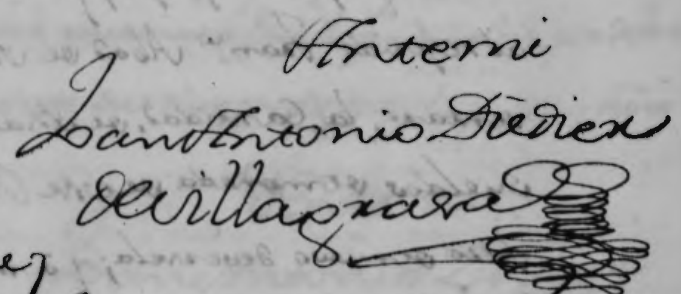 Antemi
Joan Antonio Diediex
de Villagrasa